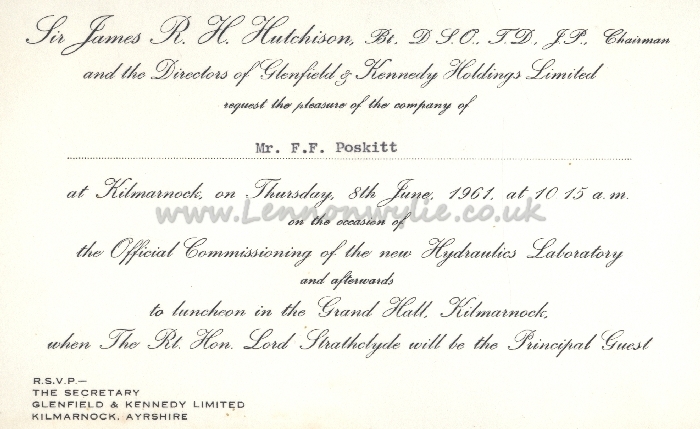 Sir James R. H. Hutchison, Bt. D.S.O., T.D., J.P., Chairman
and the Directors of Glenfield & Kennedy Holdings Limited
request the pleasure of the company of
Mr. F.F. Poskitt
at Kilmarnock, on Thursday, 8th June, 1961, at 10 15 a.m.
www.Lennonwylie.co.uk
on the occasion of
the Official Commissioning of the new Hydraulics Laboratory
and afterwards
to luncheon in the Grand Hall, Kilmarnock,
when The Rt. Hon. Lord Strathclyde will be the Principal Guest
R.S.V.P.—
THE SECRETARY
GLENFIELD & KENNEDY LIMITED
KILMARNOCK, AYRSHIRE